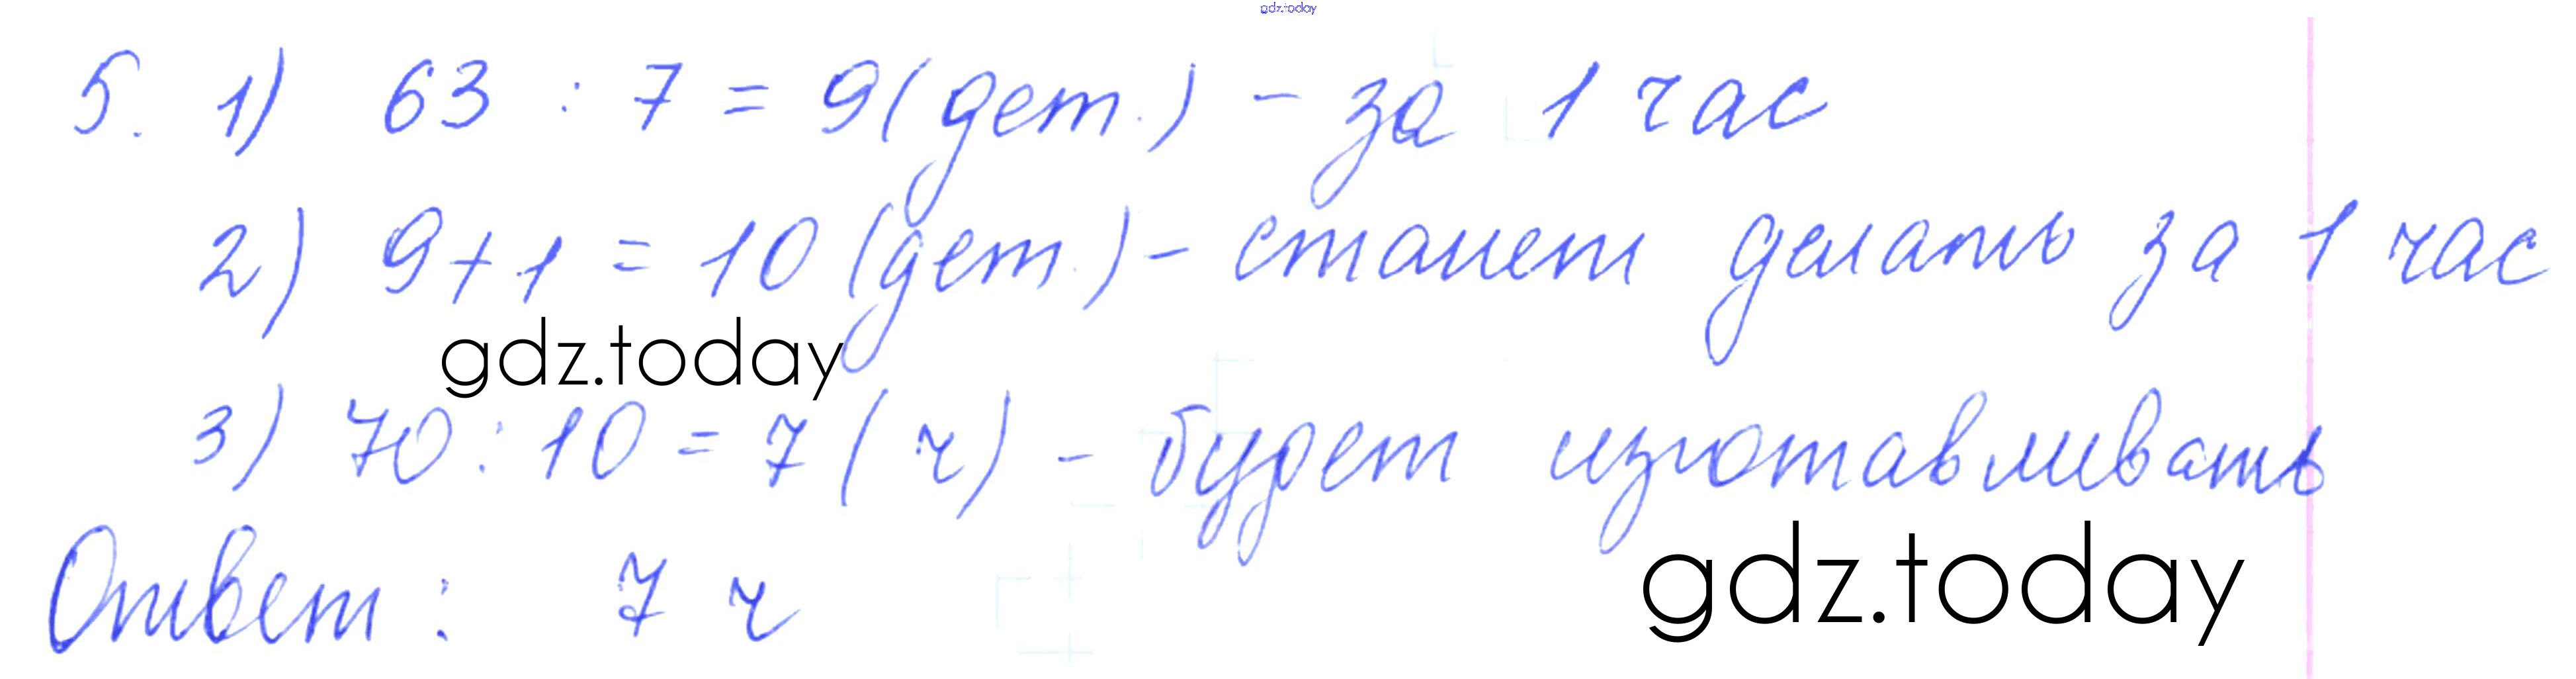 gdz.today
5. 1) 63 : 7 = 9 (дет.) - за 1 час
2) 9 + 1 = 10 (дет.) - станет делать за 1 час
gdz.today
3) 70 : 10 = 7 (ч) - будет изготавливать
Ответ: 7 ч
gdz.today